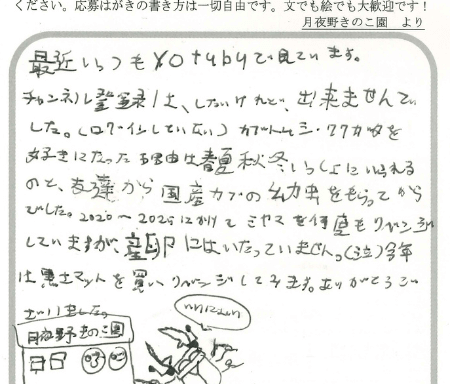 ください。応募はがきの書き方は一切自由です。文でも絵でも大歓迎です！
月夜野きのこ園　より
最近いつもYotubuで見ています。
チャンネル登録は、したいけれど、出来ませんでい
した。(ログインしていない) カブトムシ・クワガタを
好きになった理由は春夏秋冬いっしょにいられる
のと、友達から国産カブの幼虫をもらってから
でした。2020～2025にかけてミヤマを何度もリベンジ
していますが、産卵にはいたっていません。(泣)今年
は黒土マットを買いリベンジしてみます。ありがとうご
ざいました。
月夜野きのこ園